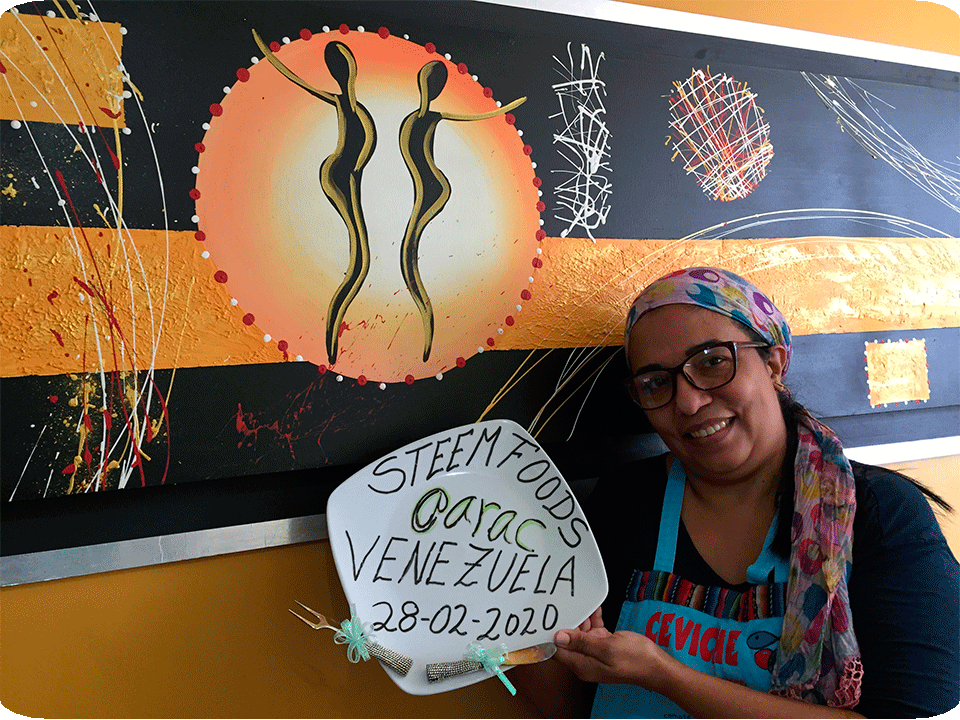 STEEM FOODS
@arac
VENEZUELA
28-02-2020
CEVICHE